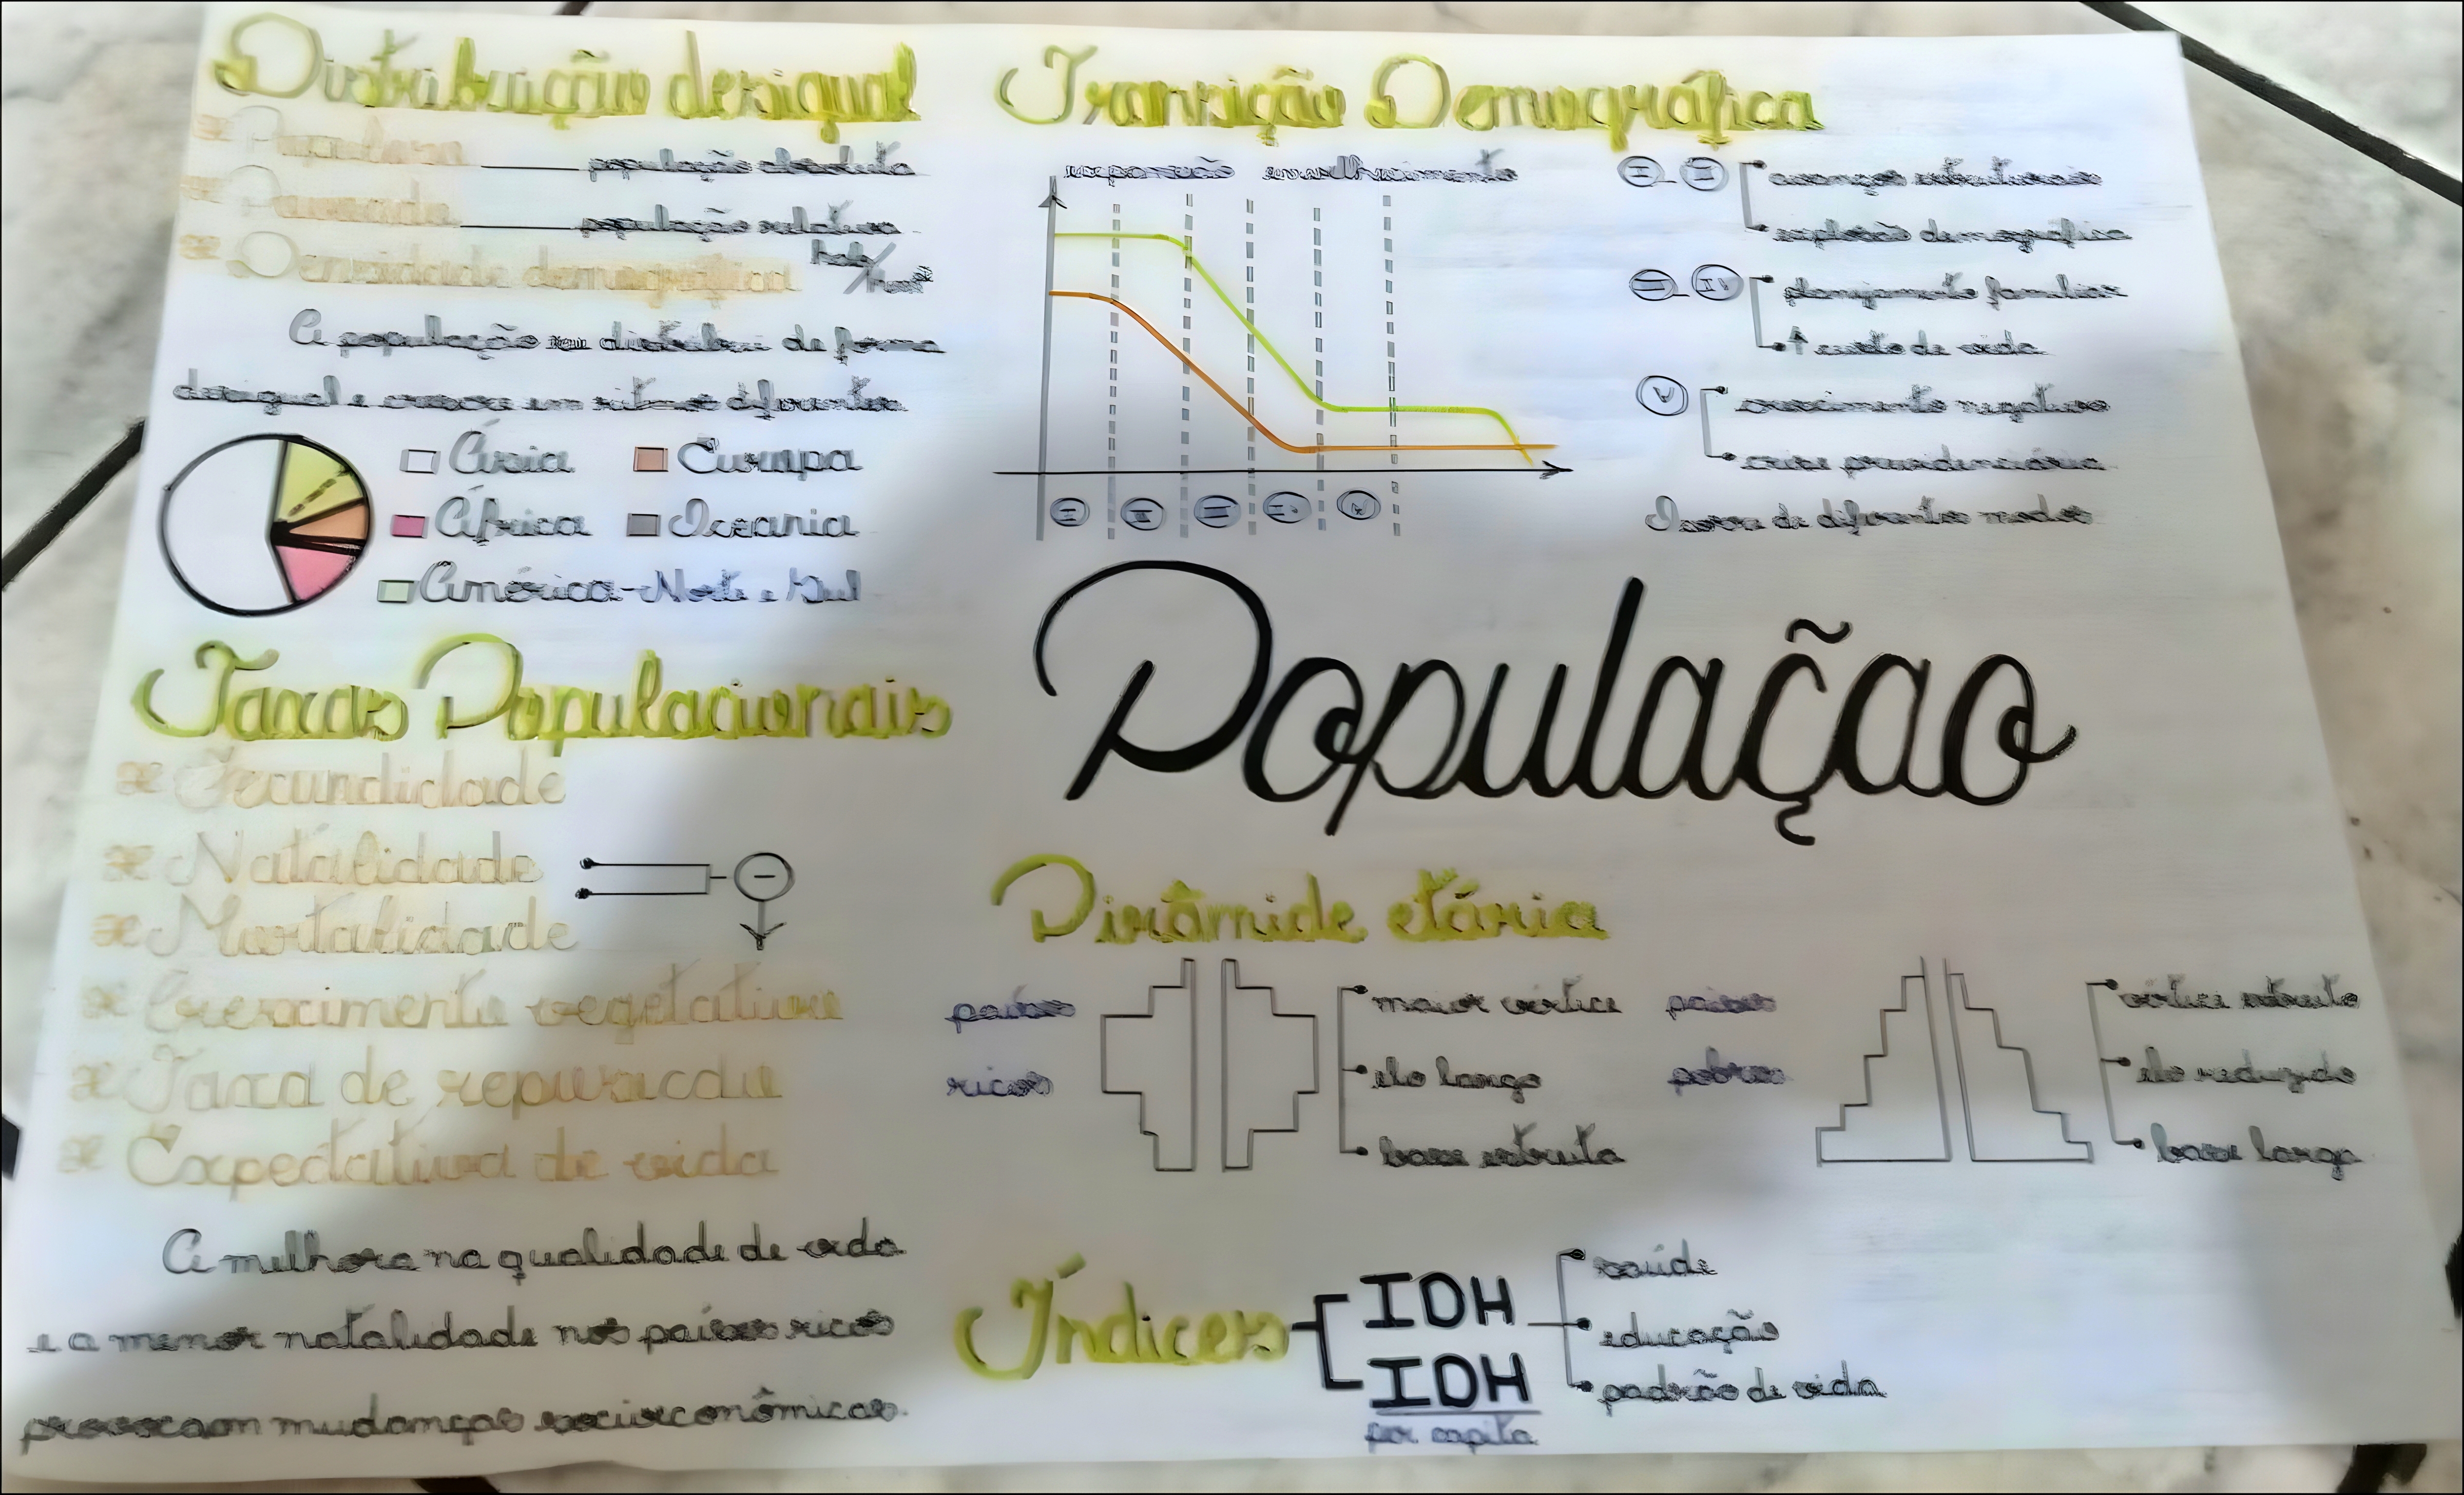 Distribuição desigual
Populoso população absoluta
Povoado população relativa
Densidade demográfica hab/km²
A população se distribui de forma
desigual e cresce em ritmos diferentes
Ásia Europa
África Oceania
América - Norte e Sul
Taxas Populacionais
Fecundidade
Natalidade
Mortalidade
-
Crescimento vegetativo
Taxa de reposição
Expectativa de vida
A melhora na qualidade de vida
e a menor natalidade nos países ricos
provocam mudanças socioeconômicas.
Transição Demográfica
expansão envelhecimento
I II III IV V
I - II avanços estruturais
explosão demográfica
III - IV planejamento familiar
↑ custo de vida
V crescimento negativo
crise previdenciária
Ocorre de diferentes modos
População
Pirâmide etária
países
ricos
maior vértice
elo largo
base estreita
países
pobres
vértice estreito
elo reduzido
base larga
Índices
IDH
saúde
educação
padrão de vida
IDH
per capita